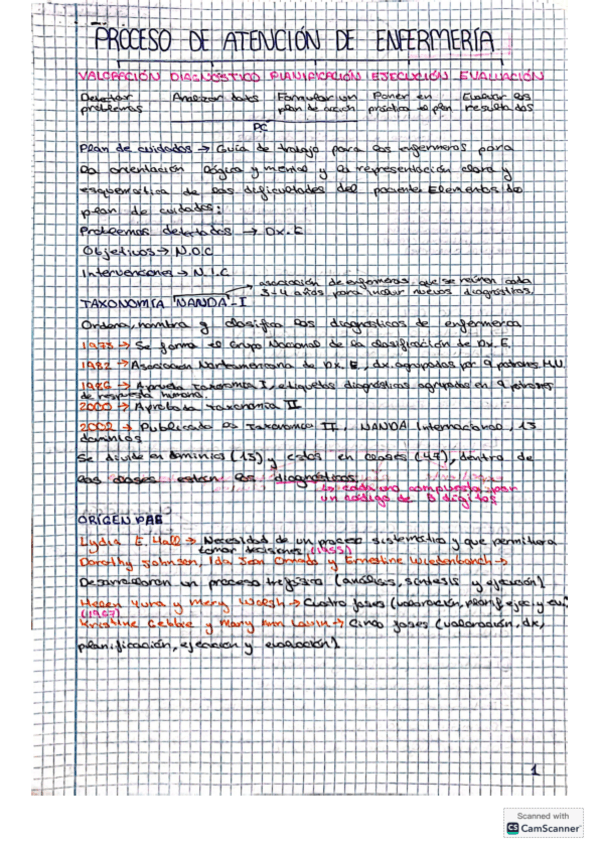 PROCESO DE ATENCIÓN DE ENFERMERÍA
VALORACIÓN DIAGNÓSTICO PLANIFICACIÓN EJECUCIÓN EVALUACIÓN
Detectar Analizar datos Formular un Poner en Evaluar los
problemas plan de acción práctica el plan resultados
PC
Plan de cuidados → Guía de trabajo para los enfermeros para
la orientación lógica y mental y la representación clara y
esquemática de las dificultades del paciente. Elementos del
plan de cuidados:
Problemas detectados → Dx.E
Objetivos → N.O.C
Intervenciones → N.I.C
asociación de enfermeras que se reúnen cada
3-4 años para nuevos diagnósticos.
TAXONOMÍA "NANDA"-I
Ordena, nombra y clasifica los diagnósticos de enfermería
1973 → Se forma el Grupo Nacional de la clasificación de Dx.E.
1982 → Asociación Norteamericana de Dx. E, dx. agrupados por 9 patrones H.U.
1986 → Aprueba taxonomía I, etiquetas diagnósticas agrupadas en 9 patrones
de respuesta humana.
2000 → Aprobada taxonomía II
2002 → Publicada la Taxonomía II, NANDA Internacional, 13
dominios
Se divide en dominios (13) y estos en clases (47), dentro de
las clases están los diagnósticos.
↳ cada uno compuesto por
un código de 8 dígitos
ORIGEN PAE
Lydia E. Hall → Necesidad de un proceso sistemático y que permitiera
tomar decisiones (1955)
Dorothy Johnson, Ida Jean Orlando y Ernestine Wiedenbach →
Desarrollaron un proceso trifásico (análisis, síntesis y ejecución)
Helen Yura y Mery Walsh → Cuatro fases (valoración, planif, ejec. y eva.)
(1967)
Kristine Gebbie y Mary Ann Lavin → Cinco fases (valoración, dx,
planificación, ejecución y evaluación)
1
Scanned with
CS CamScanner